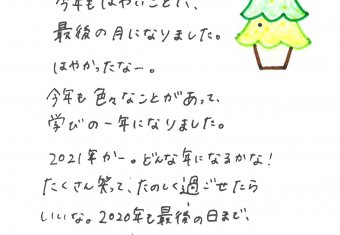 今年もはやいことに、
最後の月になりました。
はやかったなー。
今年も色々なことがあって、
学びの一年になりました。
2021年かー。どんな年になるかな!
たくさん笑って、たのしく過ごせたら
いいな。2020年も最後の日まで、